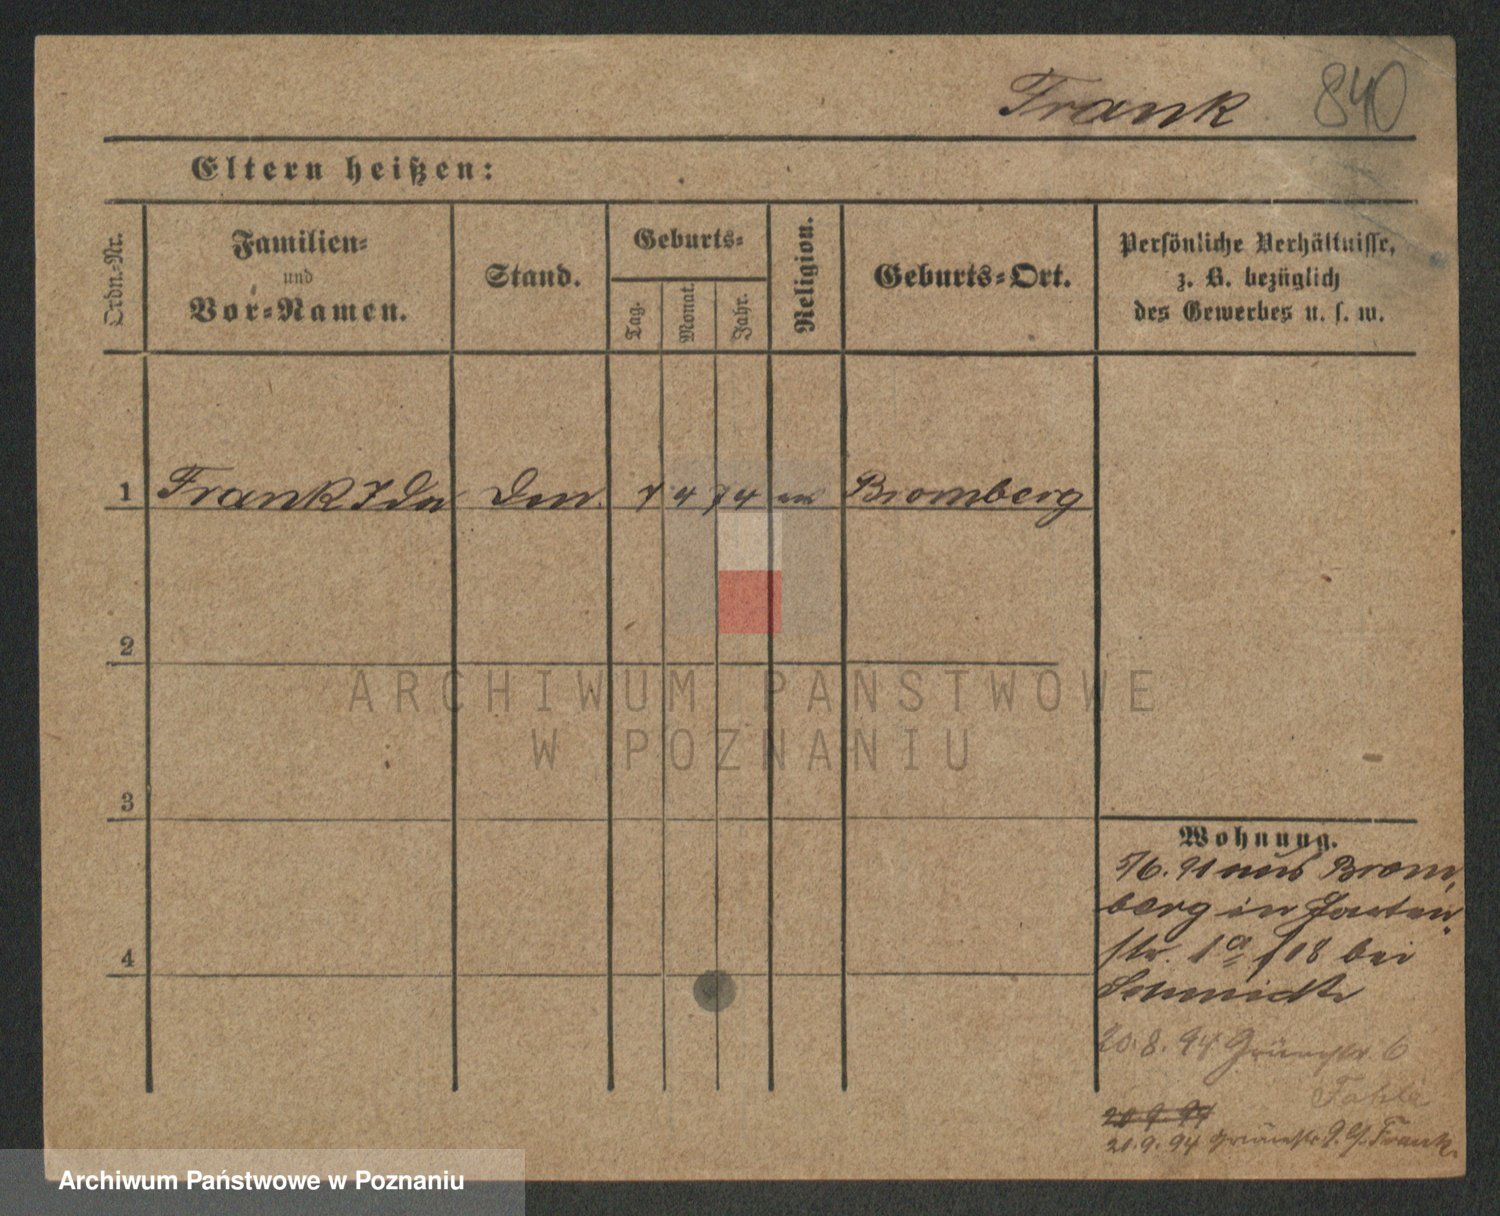 Frank 840
Eltern heißen:
Ordn.-Nr.
Familien-
und
Vor-Namen.
Stand.
Geburts-
Tag.
Monat.
Jahr.
Religion.
Geburts-Ort.
Persönliche Verhältnisse,
z. B. bezüglich
des Gewerbes u. s. w.
1 Frank Ida 7 4 74 Bromberg
2
3
4
ARCHIWUM PAŃSTWOWE
W POZNANIU
Wohnung.
aus Brom-
berg in Garten
str. 1a 18 bei
Schmidt
20.8.94 Grünstr. 6
20.9.94
20.9.94 Grünstr. Frank.
Archiwum Państwowe w Poznaniu